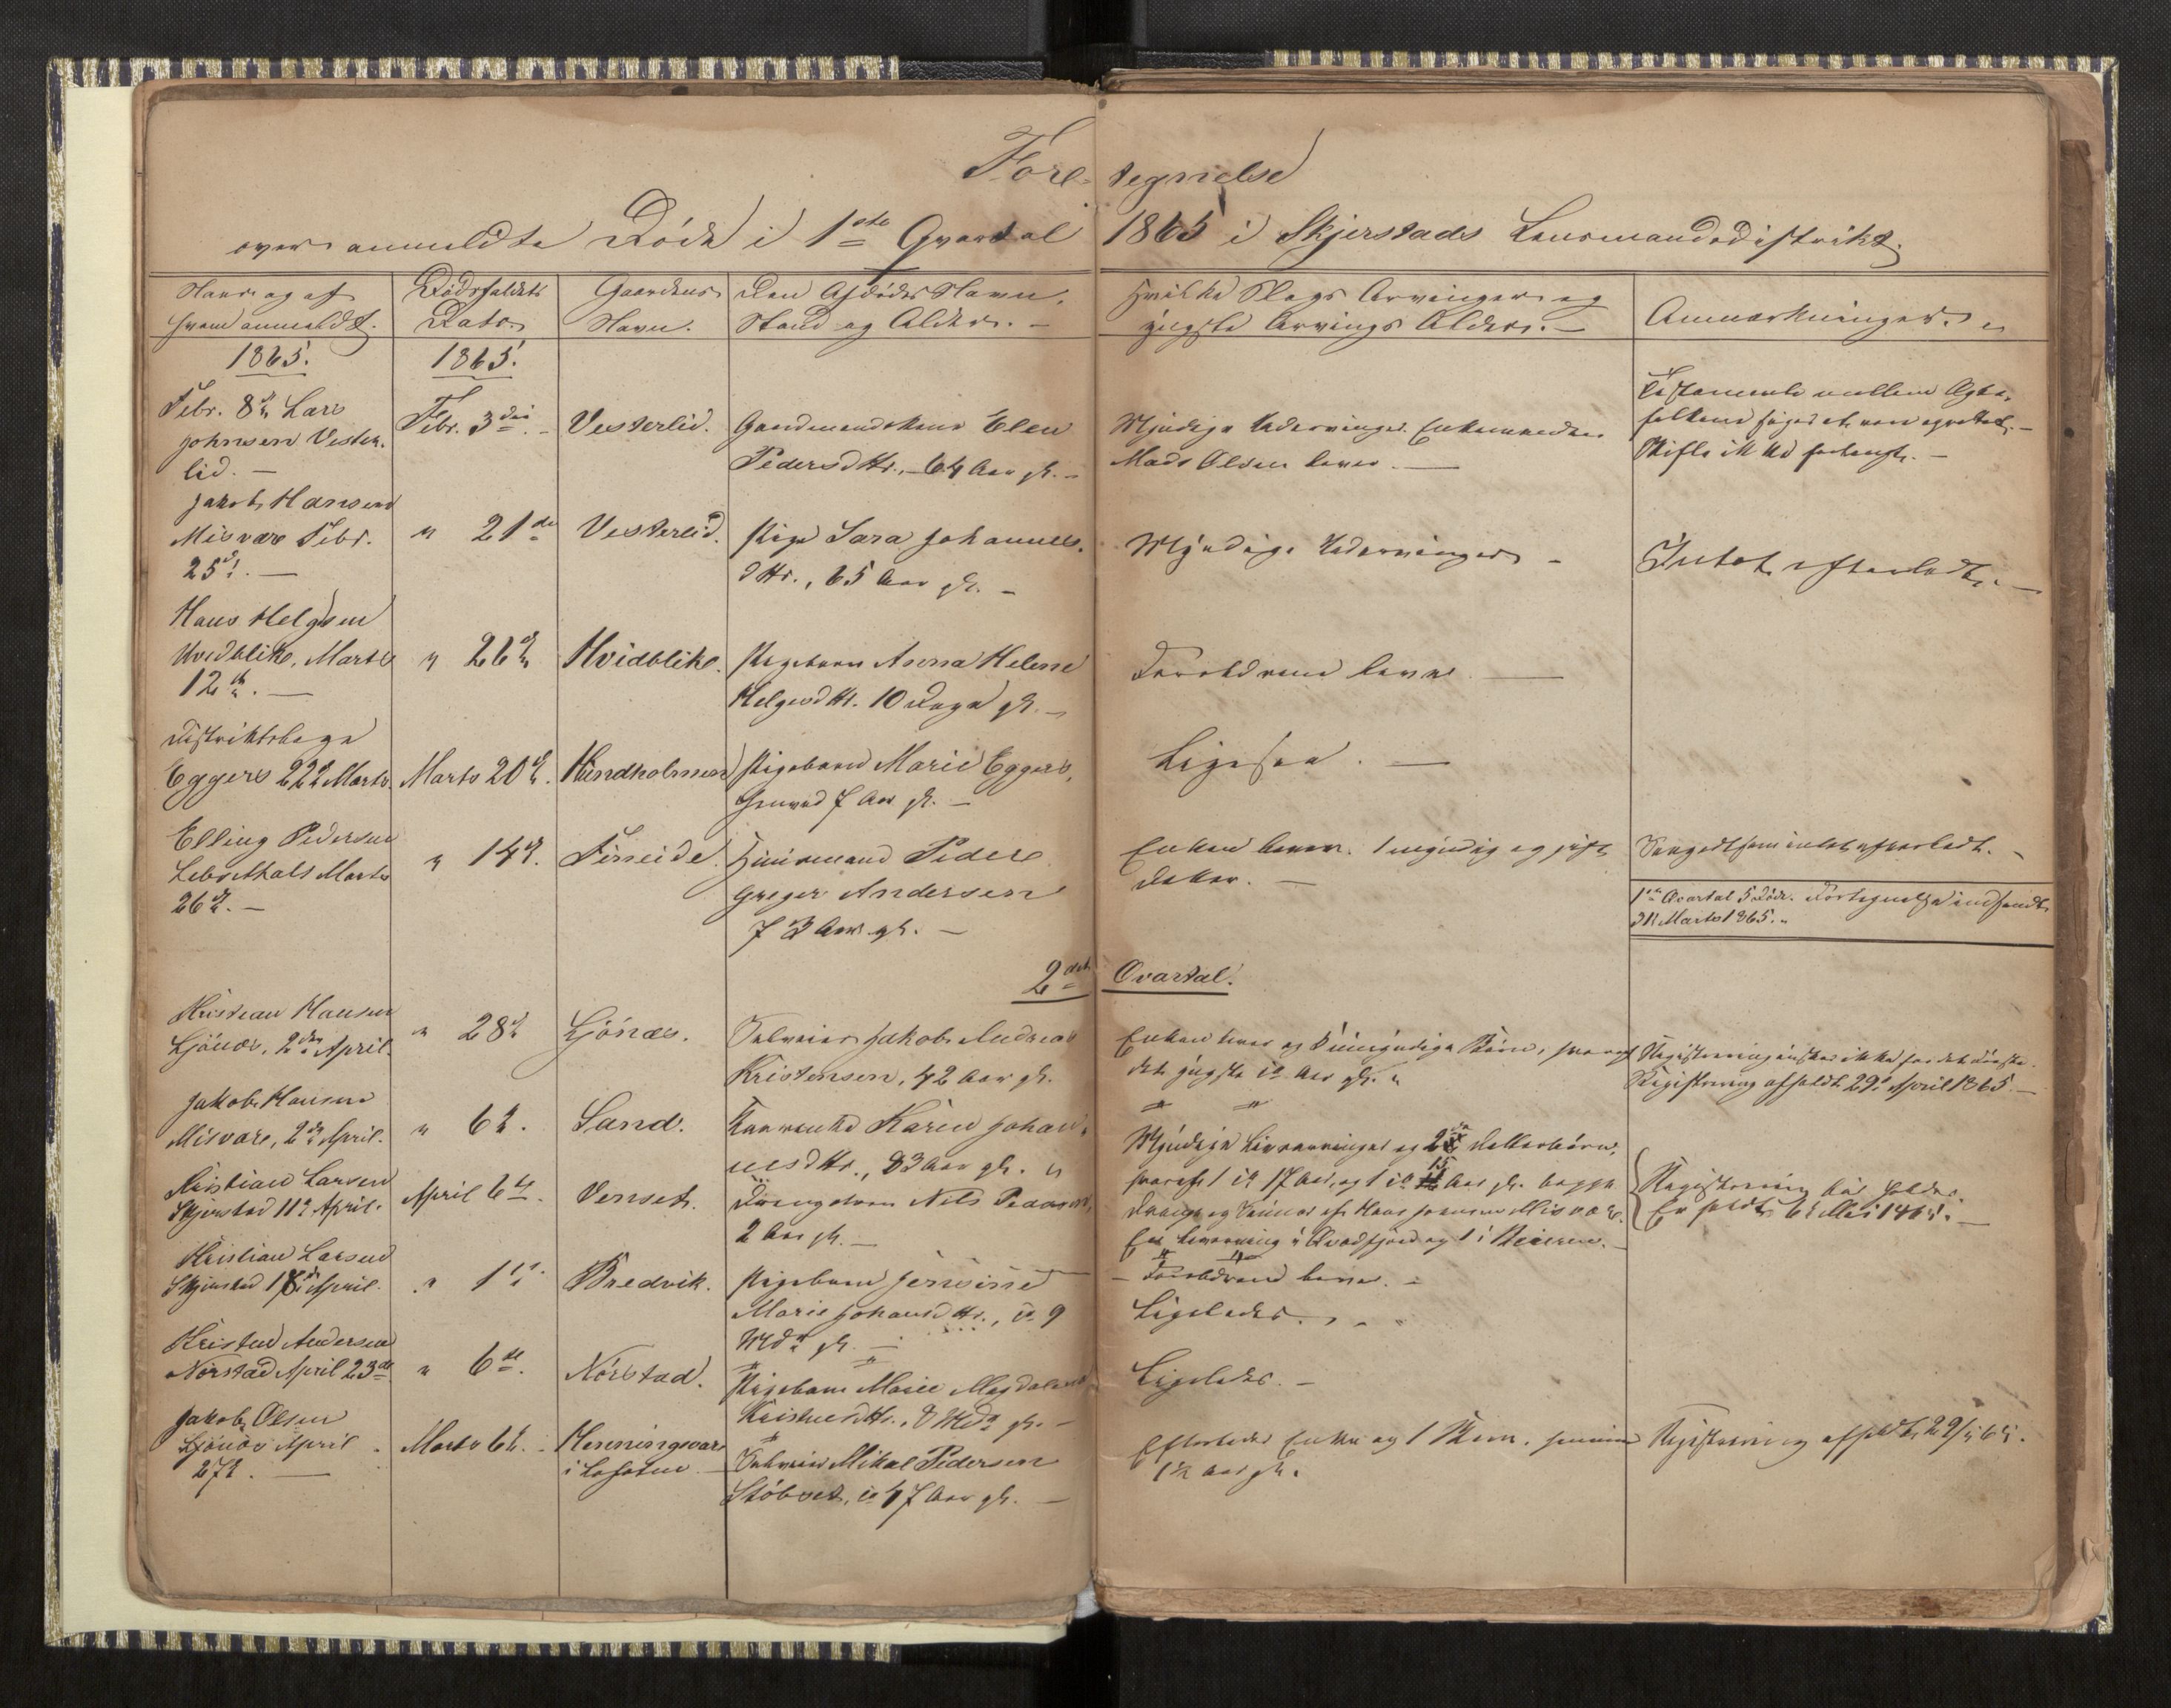 Fore tegnelse
over anmeldte Døde i 1ste Qvartal 1865 i Skjerstads Lensmandsdistrikt.
Naar og af
hvem anmeldt.
Dødsfaldets
Dato.
Gaardens
Navn.
Den Afdødes Navn,
Stand og Alder. –
Hvilke Slags Arvinger og
yngste Arvings Alder. –
Anmærkninger.
1865.
1865.
Febr. 8de Lars
Johnsen Vester-
lid. –
Febr. 3die. –
Vesterlid.
Gaardmandskone Elen
Pedersdtr., 64 Aar gl. –
Myndige Udarvinger. Enkemanden
Mads Olsen lever. –
Testamente mellem Ægte-
folkene siges at være oprettet. –
Skifte ikke forlangt. –
Jakob Hansen
Misvær Febr.
25de. –
" 21de
Vesterlid.
Pige Sara Johannes-
dtr., 65 Aar gl. –
Myndige Udarvinger –
Intet efterladt. –
Hans Helgesen
Hvidblik, Marts
12te. –
" 26de
Hvidblik.
Pigebarn Anna Helene
Helgesdtr. 10 Dage gl. –
Forældrene lever. –
Distriktslæge
Eggers 22de Marts.
Marts 20de.
Hundholmen
Pigebarn Marie Eggers,
7 Aar gl. –
Ligesaa. –
Elling Pedersen
Marts
26de. –
" 14de.
Fineide.
Huusmand Peder
Greger Andersen
73 Aar gl. –
Enken lever. 1 myndig og gift
Datter. –
Saagodtsom intet efterladt. –
1ste Qvartal 5 Døde. Fortegnelse indsendt
31 Marts 1865.
2det Qvartal.
Kristian Hansen
Ljønæs, 2den April.
" 28de
Ljønæs.
Selveier Jakob Andreas
Kristensen, 42 Aar gl.
Enken lever og umyndige Børn, hvoraf
det yngste Aar gl.
Registrering ønskes ikke for det første.
Registrering afholdt 29de April 1865. –
Jakob Hansen
Misvær, 2den April.
" 6te.
Sand.
Karen Johan-
nesdtr., 83 Aar gl.
Myndige Livsarvinger og 2de Datterbørn,
hvoraf 1 17 Aar, og 1 15 Aar gl. begge
Drenge og Sønner af Hans Jensen Misvær.
En Livsarving i Qvædfjord og 1 i Beieren. –
Registrering bør holdes.
Er holdt 6te Mai 1865. –
Kristian Larsen
Skjerstad 11te April.
April 6te.
Venset.
Drengebarn Nels
2 Aar gl. –
– Forældrene lever. –
Kristian Larsen
Skjerstad 18de April.
" 1ste.
Bredvik.
Pigebarn
Marie Johansdtr., 9
Mdr gl. –
Ligeledes.
Kristen Andersen
Nørstad April 23de
" 6te.
Nørstad.
Pigebarn Marie Magdalena
Kristensdtr., 8 Mdr gl. –
Ligeledes. –
Jakob Olsen
Ljønæs April
27de. –
Marts 6te.
Henningsvær
i Lofoten
Selveier Mikal Pedersen
47 Aar gl. –
Efterlader Enke og 1 Barn,
1½ Aar gl.
Registrering afholdt 29/5 65.